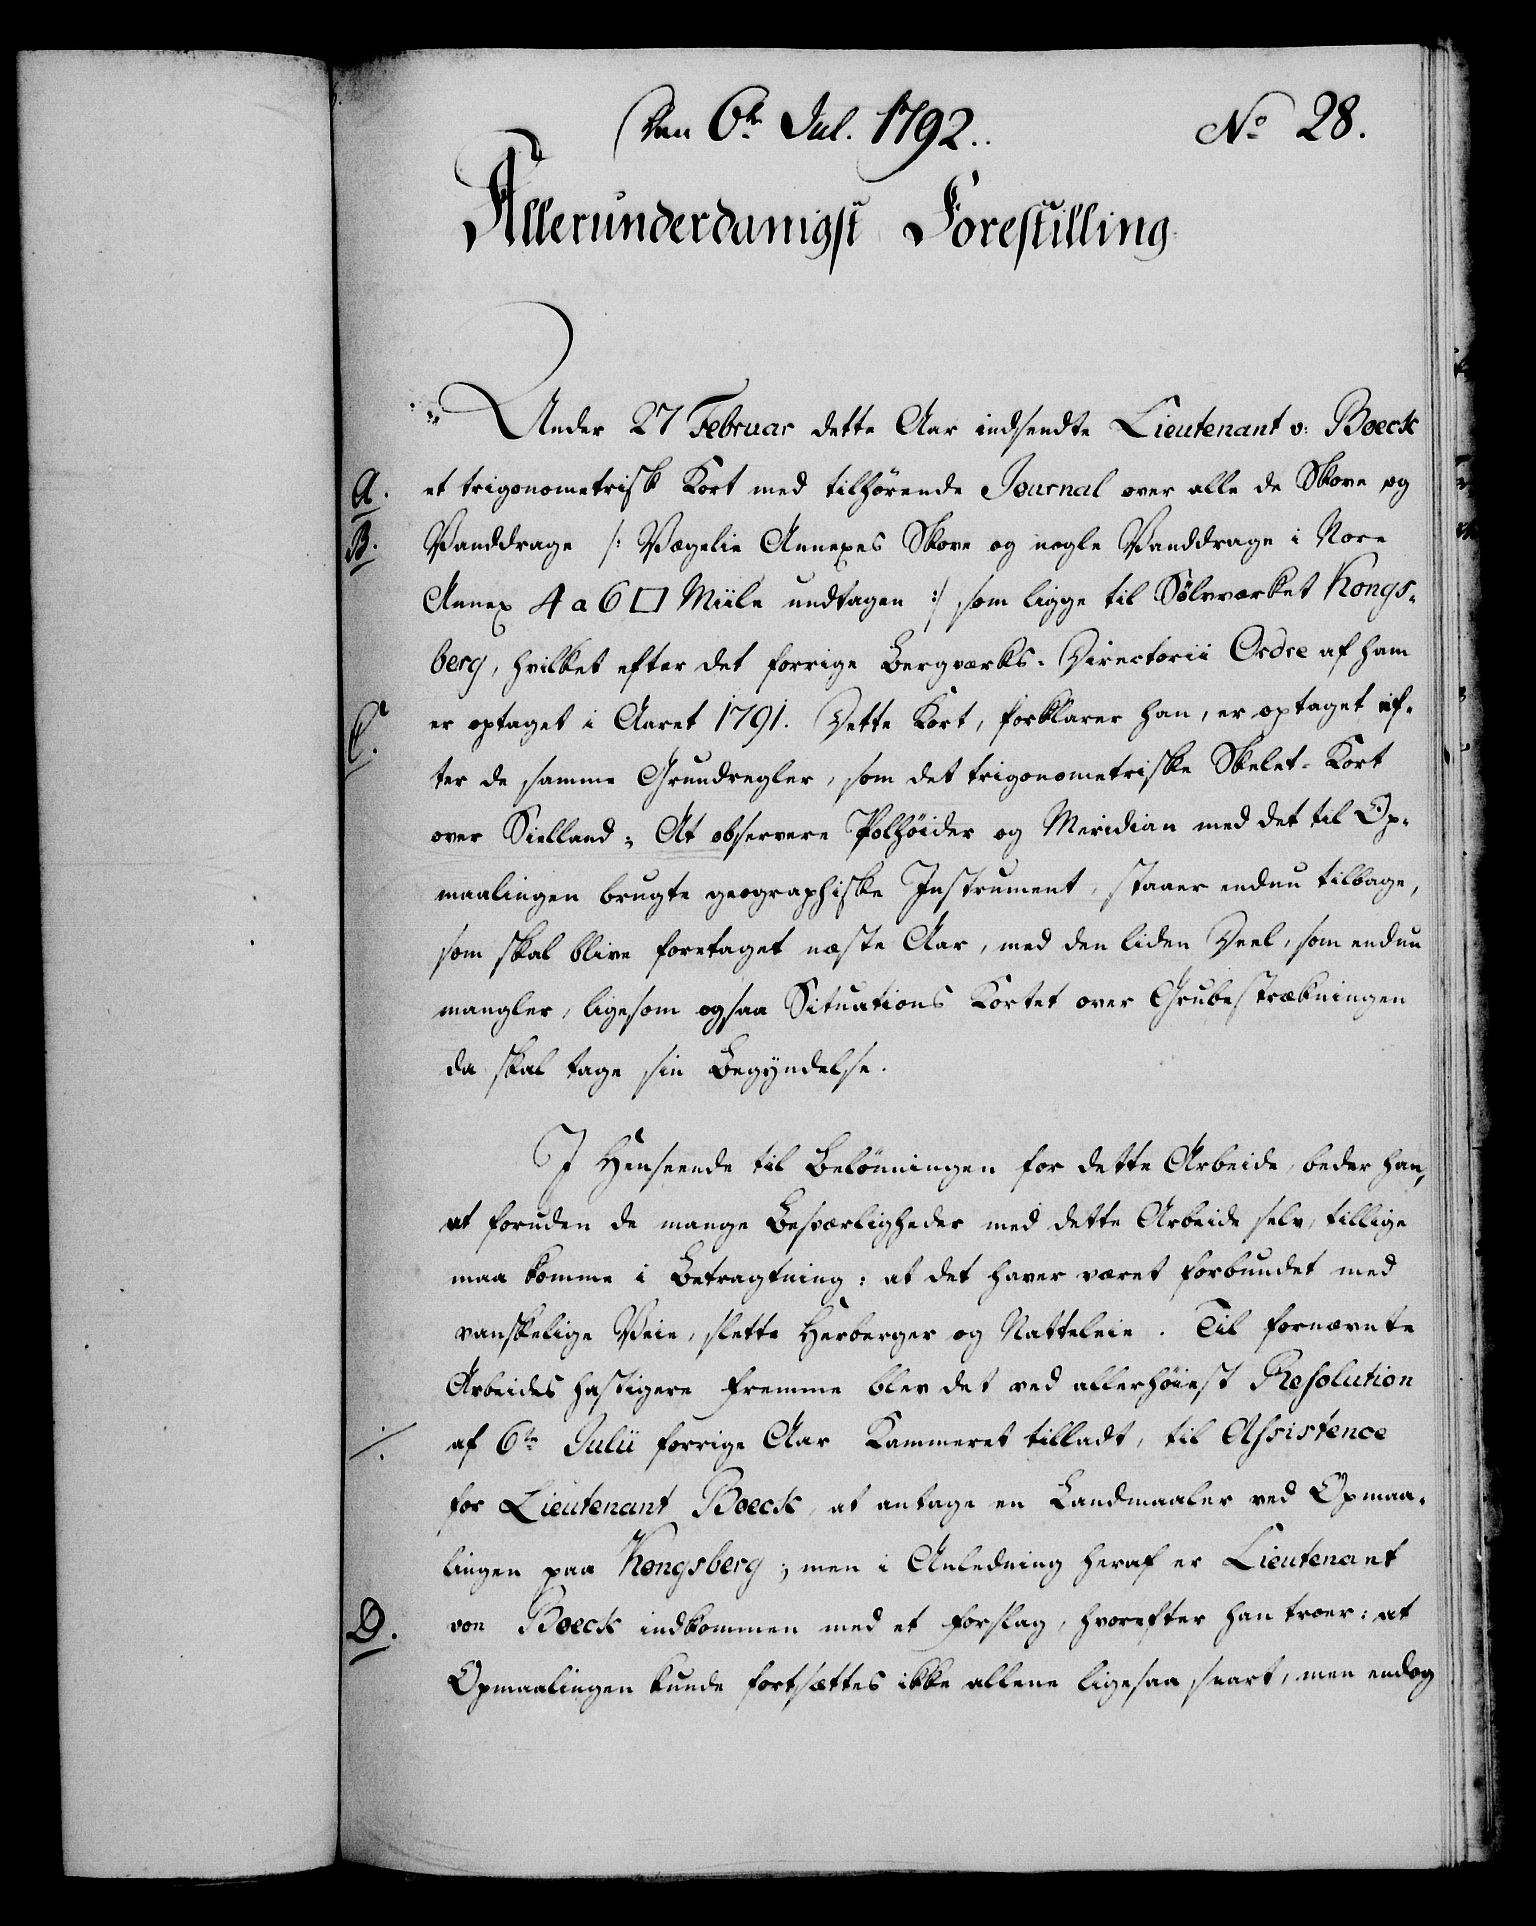 Den 6te Jul. 1792.. No 28.
Allerunderdanigst Forestilling
Under 27 Februar dette Aar indsendte Lieutenant v: Boeck
A. et trigonometrisk Kort med tilhørende Journal over alle de Skove og
B. Vanddrage /: Vægelie Annexes Skove og nogle Vanddrage i Nore
Annex 4 a 6 □ Miile undtagen :/ som ligge til Sølvværket Kongs-
berg, hvilket efter det forrige Bergværks-Directorii Ordre af ham
C. er optaget i Aaret 1791. Dette Kort, forklarer han, er optaget ef-
ter de samme Grundregler, som det trigonometriske Skelet-Kort
over Sielland; At observere Polhøider og Meridian med det til Op-
maalingen brugte geographiske Instrument, staaer endnu tilbage,
som skal blive foretaget næste Aar, med den liden Deel, som endnu
mangler, ligesom ogsaa Situations Kortet over Grubestrækningen
da skal tage sin Begyndelse.
I Henseende til Belønningen for dette Arbeide, beder han,
at foruden de mange Besværligheder med dette Arbeide selv, tillige
maa komme i Betragtning: at det haver været forbundet med
vanskelige Veie, slette Herberger og Natteleie. Til fornævnte
Arbeides hastigere Fremme blev det ved allerhøiest Resolution
./. af 6te Julii forrige Aar Kammeret tilladt, til Assistence
for Lieutenant Boeck, at antage en Landmaaler ved Opmaa-
lingen paa Kongsberg; men i Anledning heraf er Lieutenant
D. von Boeck indkommen med et Forslag, hvorefter han troer: at
Opmaalingen kunde fortsættes ikke allene ligesaa snart, men endog